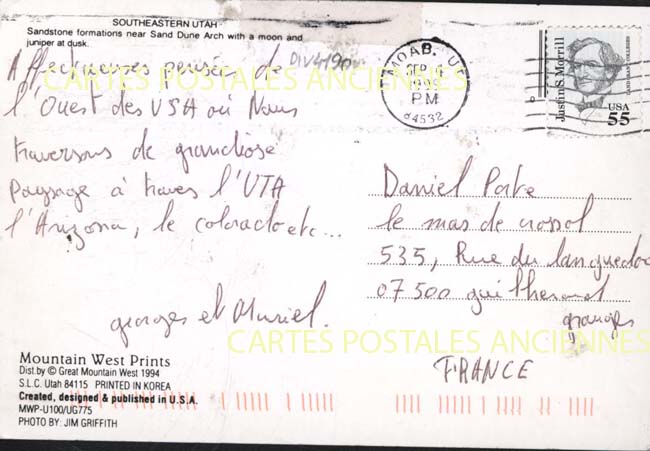 SOUTHEASTERN UTAH
Sandstone formations near Sand Dune Arch with a moon and
juniper at dusk.
DIV4190
CARTES POSTALES ANCIENNES
Affectueuses pensées de
l'Ouest des USA où Nous
traversons de grandiose
paysage à traves l'UTA
l'Arizona, le colorado etc...
georges et Muriel.
MOAB, UT
SEP
PM
84532
Justin S. Morrill
LAND GRANT COLLEGES
USA
55
Daniel
le mas de
535, Rue du languedoc
07500 guilherand
granges
FRANCE
CARTES POSTALES ANCIENNES
Mountain West Prints
Dist.by © Great Mountain West 1994
S.L.C. Utah 84115 PRINTED IN KOREA
Created, designed & published in U.S.A.
MWP-U100/UG775
PHOTO BY: JIM GRIFFITH